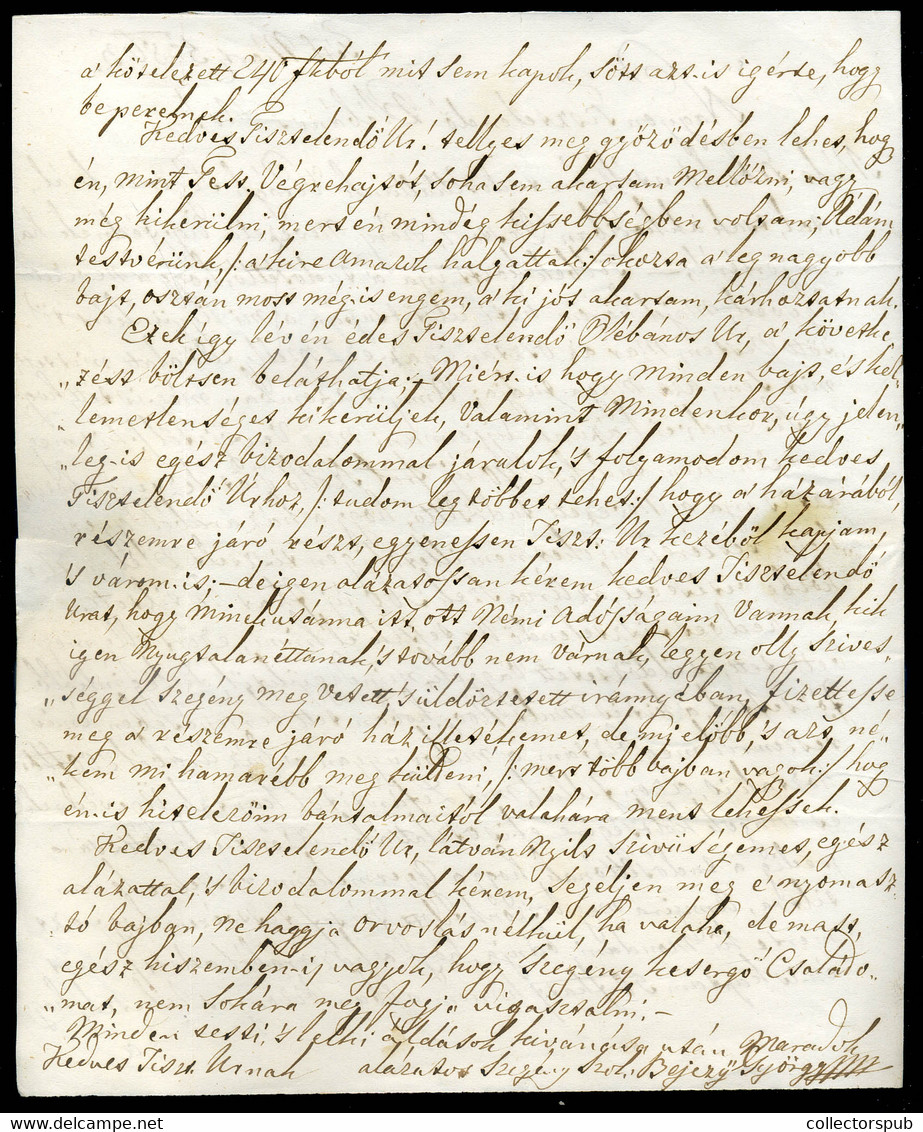 a' kötelezett 240 ftból mit sem kapok, sőtt azt-is igérte, hogy
be perelnek.
Kedves Tisztelendő Ur! tellyes meg győződésben lehet, hogy
én, mint Test. Végrehajtót, soha sem akartam Mellőzni, vagy
még kikerülni, mert én mindég kissebbségben voltam; Ádám
testvérünk, /: a' kire Amazok halgattak :/ okozta a' leg nagyobb
bajt, osztán most még-is engem, a' ki jót akartam, kárhoztatnak.
Ezek így lévén édes Tisztelendő Plébános Ur, a' követke„
„zést böltsen beláthatja; Miért-is hogy minden bajt, és kel„
„lemetlenséget kikerüljek, Valamint Mindenkor, úgy jelen„
„leg-is egész bizodalommal járulok, 's folyamodom kedves
Tisztelendő Urhoz, /: tudom leg többet tehet :/ hogy a' ház árából,
részemre járó részt, egyenessen Tiszt: Ur kezéből kapjam,
's várom-is; – de igen alázatossan kérem kedves Tisztelendő
Urat, hogy Minekutánna itt, ott Némi Adósságaim Vannak, kik
igen Nyugtalanéttanak, 's tovább nem Várnak, legyen olly Szives„
„séggel szegény meg vetett, 's üldöztetett iránnyában, fizettesse
meg a' részemre járó ház illetékemet, de mi előbb, 's azt, né„
„kem mi hamarébb meg küldeni, /: mert több bajban vagok :/ hog
én-is hitelezőim bántalmaitól valahára ment lehessek.
Kedves Tisztelendő Ur, látván Nyilt szivüségemet, egész
alázattal, 's bizodalommal kérem, segéljen meg e' nyomasz
tó bajban, ne haggja orvoslás nélkül, ha valaha, de mast,
egész hiszemben-i, vagyok, hogy szegény kesergő Családo„
„mat, nem sokára meg fogja vigasztalni. –
Minden testi, 's lelki áldások kivánása után Maradok
Kedves Tiszt. Urnak alázatos szegény szol: Bejczÿ György
collectorspub